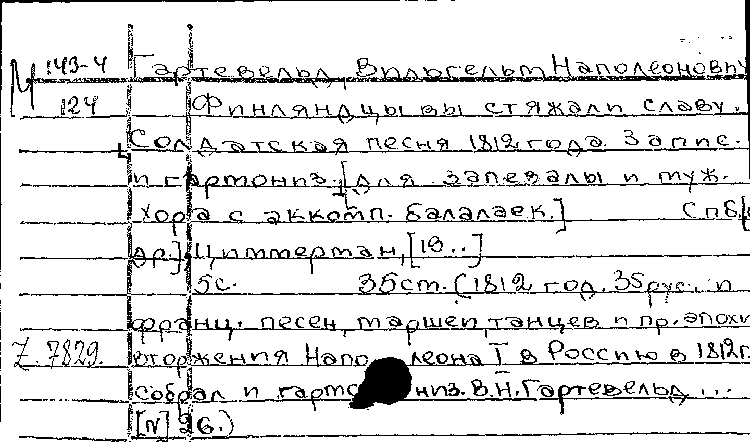 М 143-4 Гартевельд, Вильгельм Наполеонович
124 Финляндцы вы стяжали славу.
Солдатская песня 1812 года. Запис.
и гармониз. [Для запевалы и муж.
хора с аккомп. балалаек.] СПб. [и
др.], Циммерман, [19..]
5с. 35cm. (1812 год. 35 рус. и
франц. песен, маршей, танцев и пр. эпохи
Z. 7829. вторжения Наполеона I в Россию в 1812г.
собрал и гармониз. В.Н. Гартевельд...
[N] 26.)